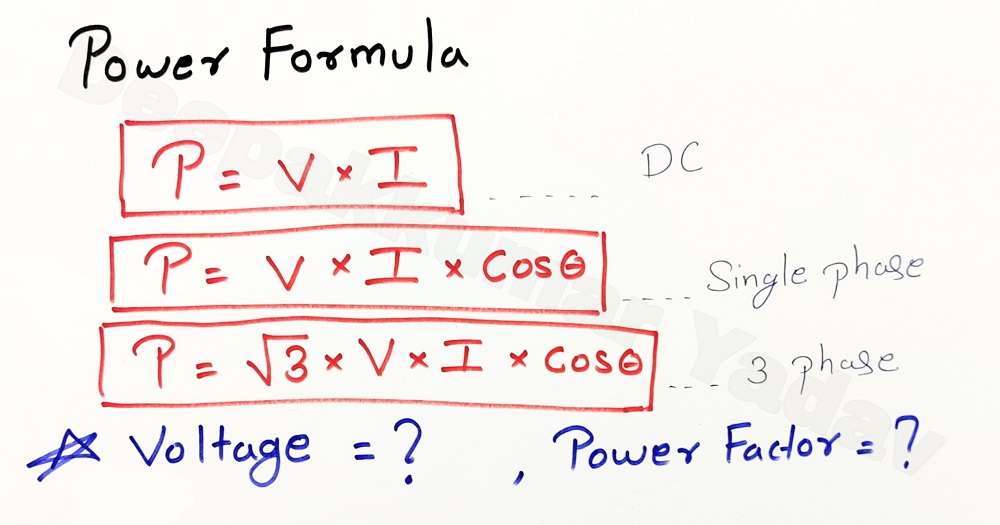 Power Formula
P = V × I ...... DC
P = V × I × Cosθ .... Single phase
P = √3 × V × I × Cosθ ... 3 phase
☆ Voltage = ? , Power Factor = ?
Deepakkumar Yadav